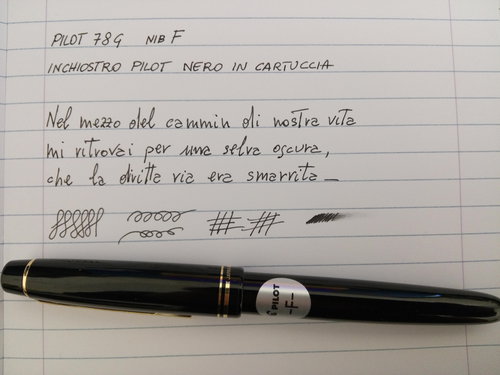 PILOT 78G NIB F
INCHIOSTRO PILOT NERO IN CARTUCCIA
Nel mezzo del cammin di nostra vita
mi ritrovai per una selva oscura,
che la diritta via era smarrita_
PILOT
-F-